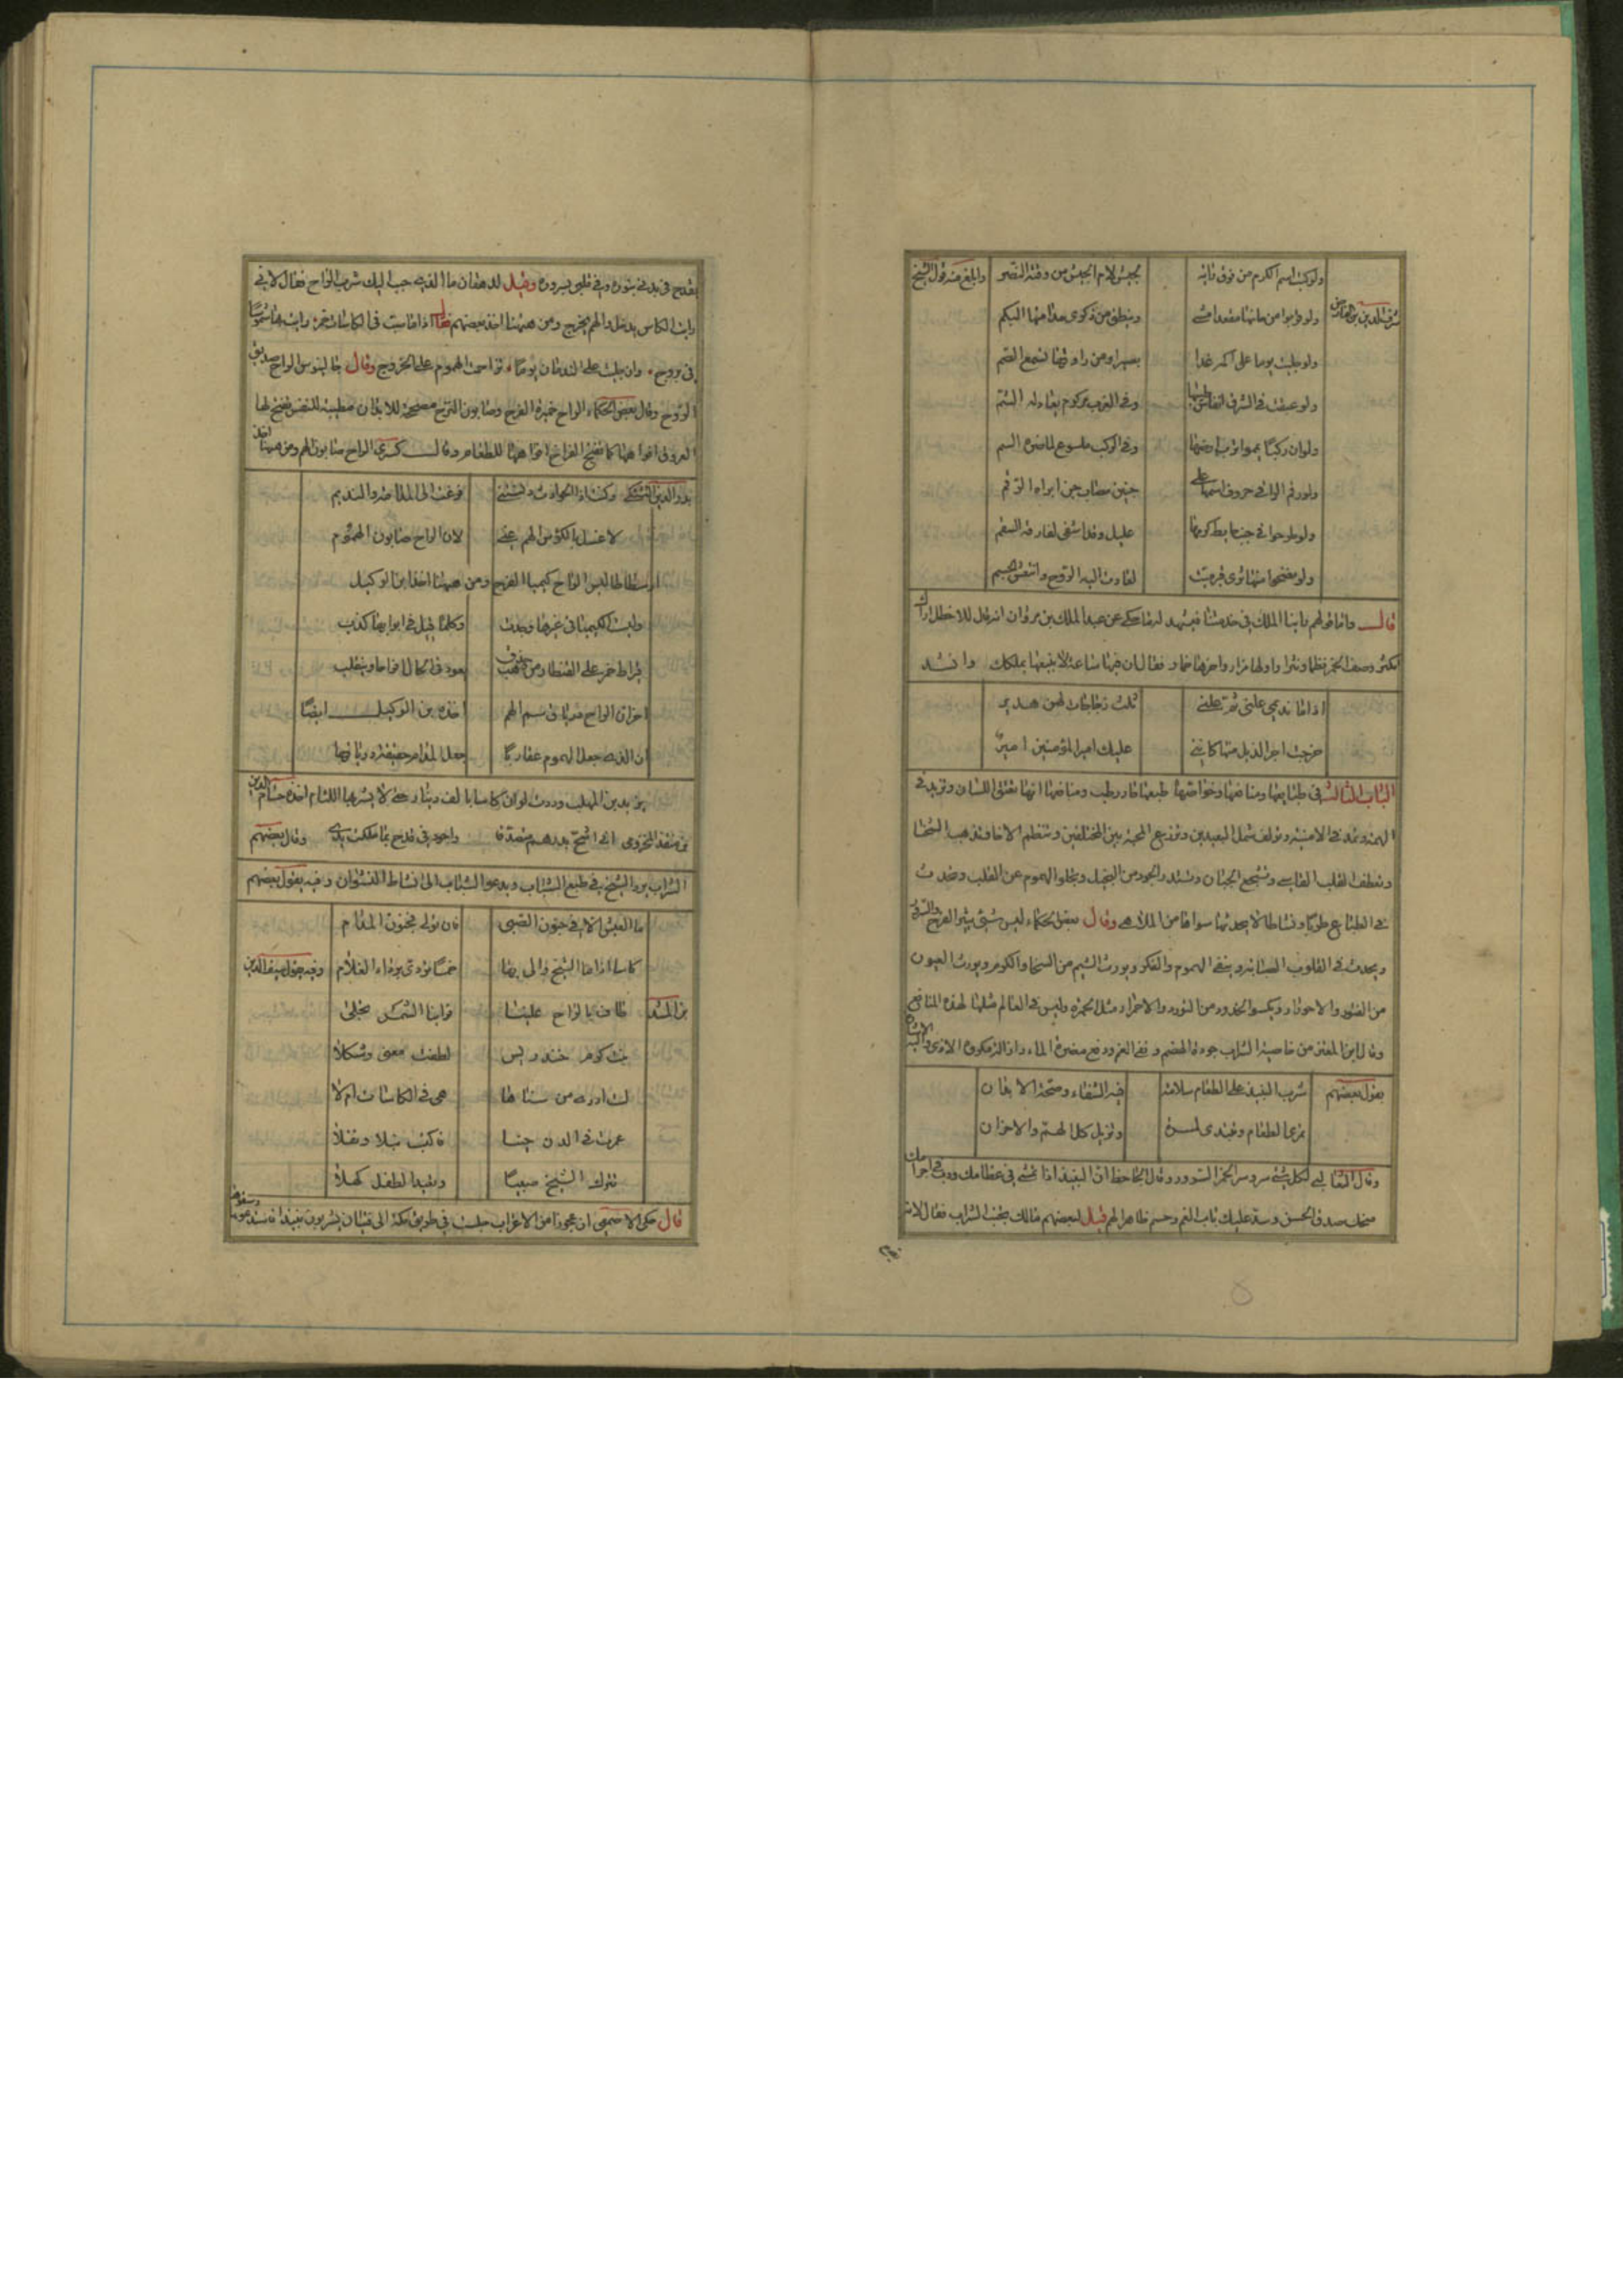 ولو كتبت اسم الكرم من فوق بابه لجيش لام الجيش من وقته النصر وابلغ منه قول الشيخ
شرف الدين بن الفارض ولو قربوا من حانها مقعدا مشى وينطق من ذكرى مذاقتها البكم
ولو جليت يوما على اكمه غدا بصيرا ومن راووقها تسمع الصم
ولو عبقت في الشرق انفاس طيبها وفي الغرب مزكوم لعاد له الشم
ولو ان ركبا يمموا ترب ارضها وفي الركب ملسوع لما ضره السم
ولو رقم الراقي حروف اسمها على جبين مصاب جن ابراه الرقم
ولو طرحوا في حائط كرمها عليل وقد اشفى لفارقه السقم
ولو نضحوا منها ثرى قبر ميت لعادت اليه الروح وانتعش الجسم
قال واما قولهم وابنا الملك في خدمتنا فيشهد له ما حكى عن عبد الملك بن مروان انه قال للاخطل اراك
تكثر وصف الخمر نظما ونثرا واولها مرار واخرها خمار فقال ان فيها ساعة لا ابيعها بملكك وانشد
اذا ما نديمي علني ثم علني ثلث زجاجات لهن هدير
خرجت اجر الذيل منها كانني عليك امير المؤمنين امير
الباب الثالث في طبايعها ومنافعها وخواصها طبعها حار رطب ومنافعها انها تفتق اللسان وتزيد في
الهمة وتمد في الامنية وتولف شمل البعيدين وتزرع المحبة بين المختلفين
وتعطف القلب القاسي وتشجع الجبان وتسخي البخيل وتجلو الهموم عن القلب وتحدث
في الطباع طربا ونشاطا لا يحدثها سواها من الملاهي وقال بعض الحكماء ليس شيء يثير الفرح والسرور
ويحدث في القلوب الصبابة وينفي الهموم والفكر ويورث الشيم من السخا والكرم ويورث العيون
من الفتور والاحورار ويكسو الخدود من التورد والاحمرار مثل الخمرة وليس في العالم مثلها لهذه المنافع
وقال ابن المعتز من خاصية الشراب جودة الهضم ونفي الغم ودفع مضرة الماء
يقول بعضهم شرب النبيذ على الطعام سلامة فيه الشفاء وصحة الابدان
وتزيل كل الهم والاحزان
وقال الثعالبي لكل شيء سر وسر الخمر السرور وقال الجاحظ ان النبيذ اذا تمشى في عظامك ودب في اجزامك
منحك صدق الحسن وسد عليك باب الغم وحسم خاطر الهم قيل لبعضهم مالك تحب الشراب فقال لانه
يقدح في يدي بنوره وفي قلبي بسروره وقيل لدهقان ما الذي حبب اليك شرب الراح فقال لاني
رايت الكاس يدخل والهم يخرج ومن ههنا اخذ بعضهم فقال اذا ما ست في الكاسات خمر رايت لها شموسا
في بروج وان جليت على الندمان يوما تزاحمت الهموم على الخروج وقال جالينوس الراح صديق
الروح وقال بعض الحكماء الراح خميرة الفرح وصابون الترح مصحة للابدان مطيبة للنفس تفتح لها
العروق افواهها كما تفتح الفراخ افواهها للطعام وقال كسرى الراح صابون الهم ومن ههنا اخذ
بدر الدين وكنا اذا الحوادث دنستني فزعت الى المدامة والنديم
لاغسل بالكؤس الهم عني لان الراح صابون الهموم
ارسطاطاليس الراح كيميا الفرح ومن ههنا اخذ ابن الوكيل
وليست الكيميا في غيرها وجدت وكلما قيل في ابوابها كذب
قيراط خمر على القنطار من حزن يعود في الحال افراحا وينقلب
اخراق الراح ترياق سم الهم اخذه بن الوكيل ايضا
ان الذي جعل الهموم عقاربا جعل المدام حقيقة درياقها
يزيد بن المهلب وددت لو ان كاسا بالف دينار حتى لا يشربها اللئام اخذه حسام الدين
واجود في قدح بما ملكت يدي وقال بعضهم
الشراب يرد الشيخ في طبع الشباب ويدعو الشباب الى نشاط النشوان وفيه يقول بعضهم
ما العيش الا في جنون الصبى فان تولى فجنون المدام
كاسا اذا ما الشيخ والى بها خمسا تردى برداء الغلام وفيه يقول سيف الدين
بن المشد طاف بالراح علينا فراينا الشمس تجلى
بنت كرم خندريس لطفت معنى وشكلا
لست ادرى من سناها هي في الكاسات ام لا
عمرت في الدن حينا
تترك الشيخ صبيا وتعيد الطفل كهلا
قال حكى الاصمعي ان عجوزا من الاعراب جلست في طريق مكة الى فتيان يشربون نبيذا